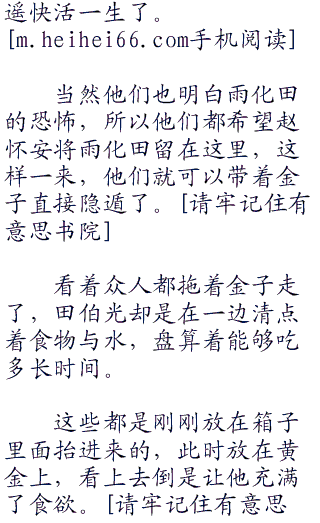 遥快活一生了。
[m.heihei66.com手机阅读]
当然他们也明白雨化田
的恐怖，所以他们都希望赵
怀安将雨化田留在这里，这
样一来，他们就可以带着金
子直接隐遁了。[请牢记住有
意思书院]
看着众人都拖着金子走
了，田伯光却是在一边清点
着食物与水，盘算着能够吃
多长时间。
这些都是刚刚放在箱子
里面抬进来的，此时放在黄
金上，看上去倒是让他充满
了食欲。[请牢记住有意思